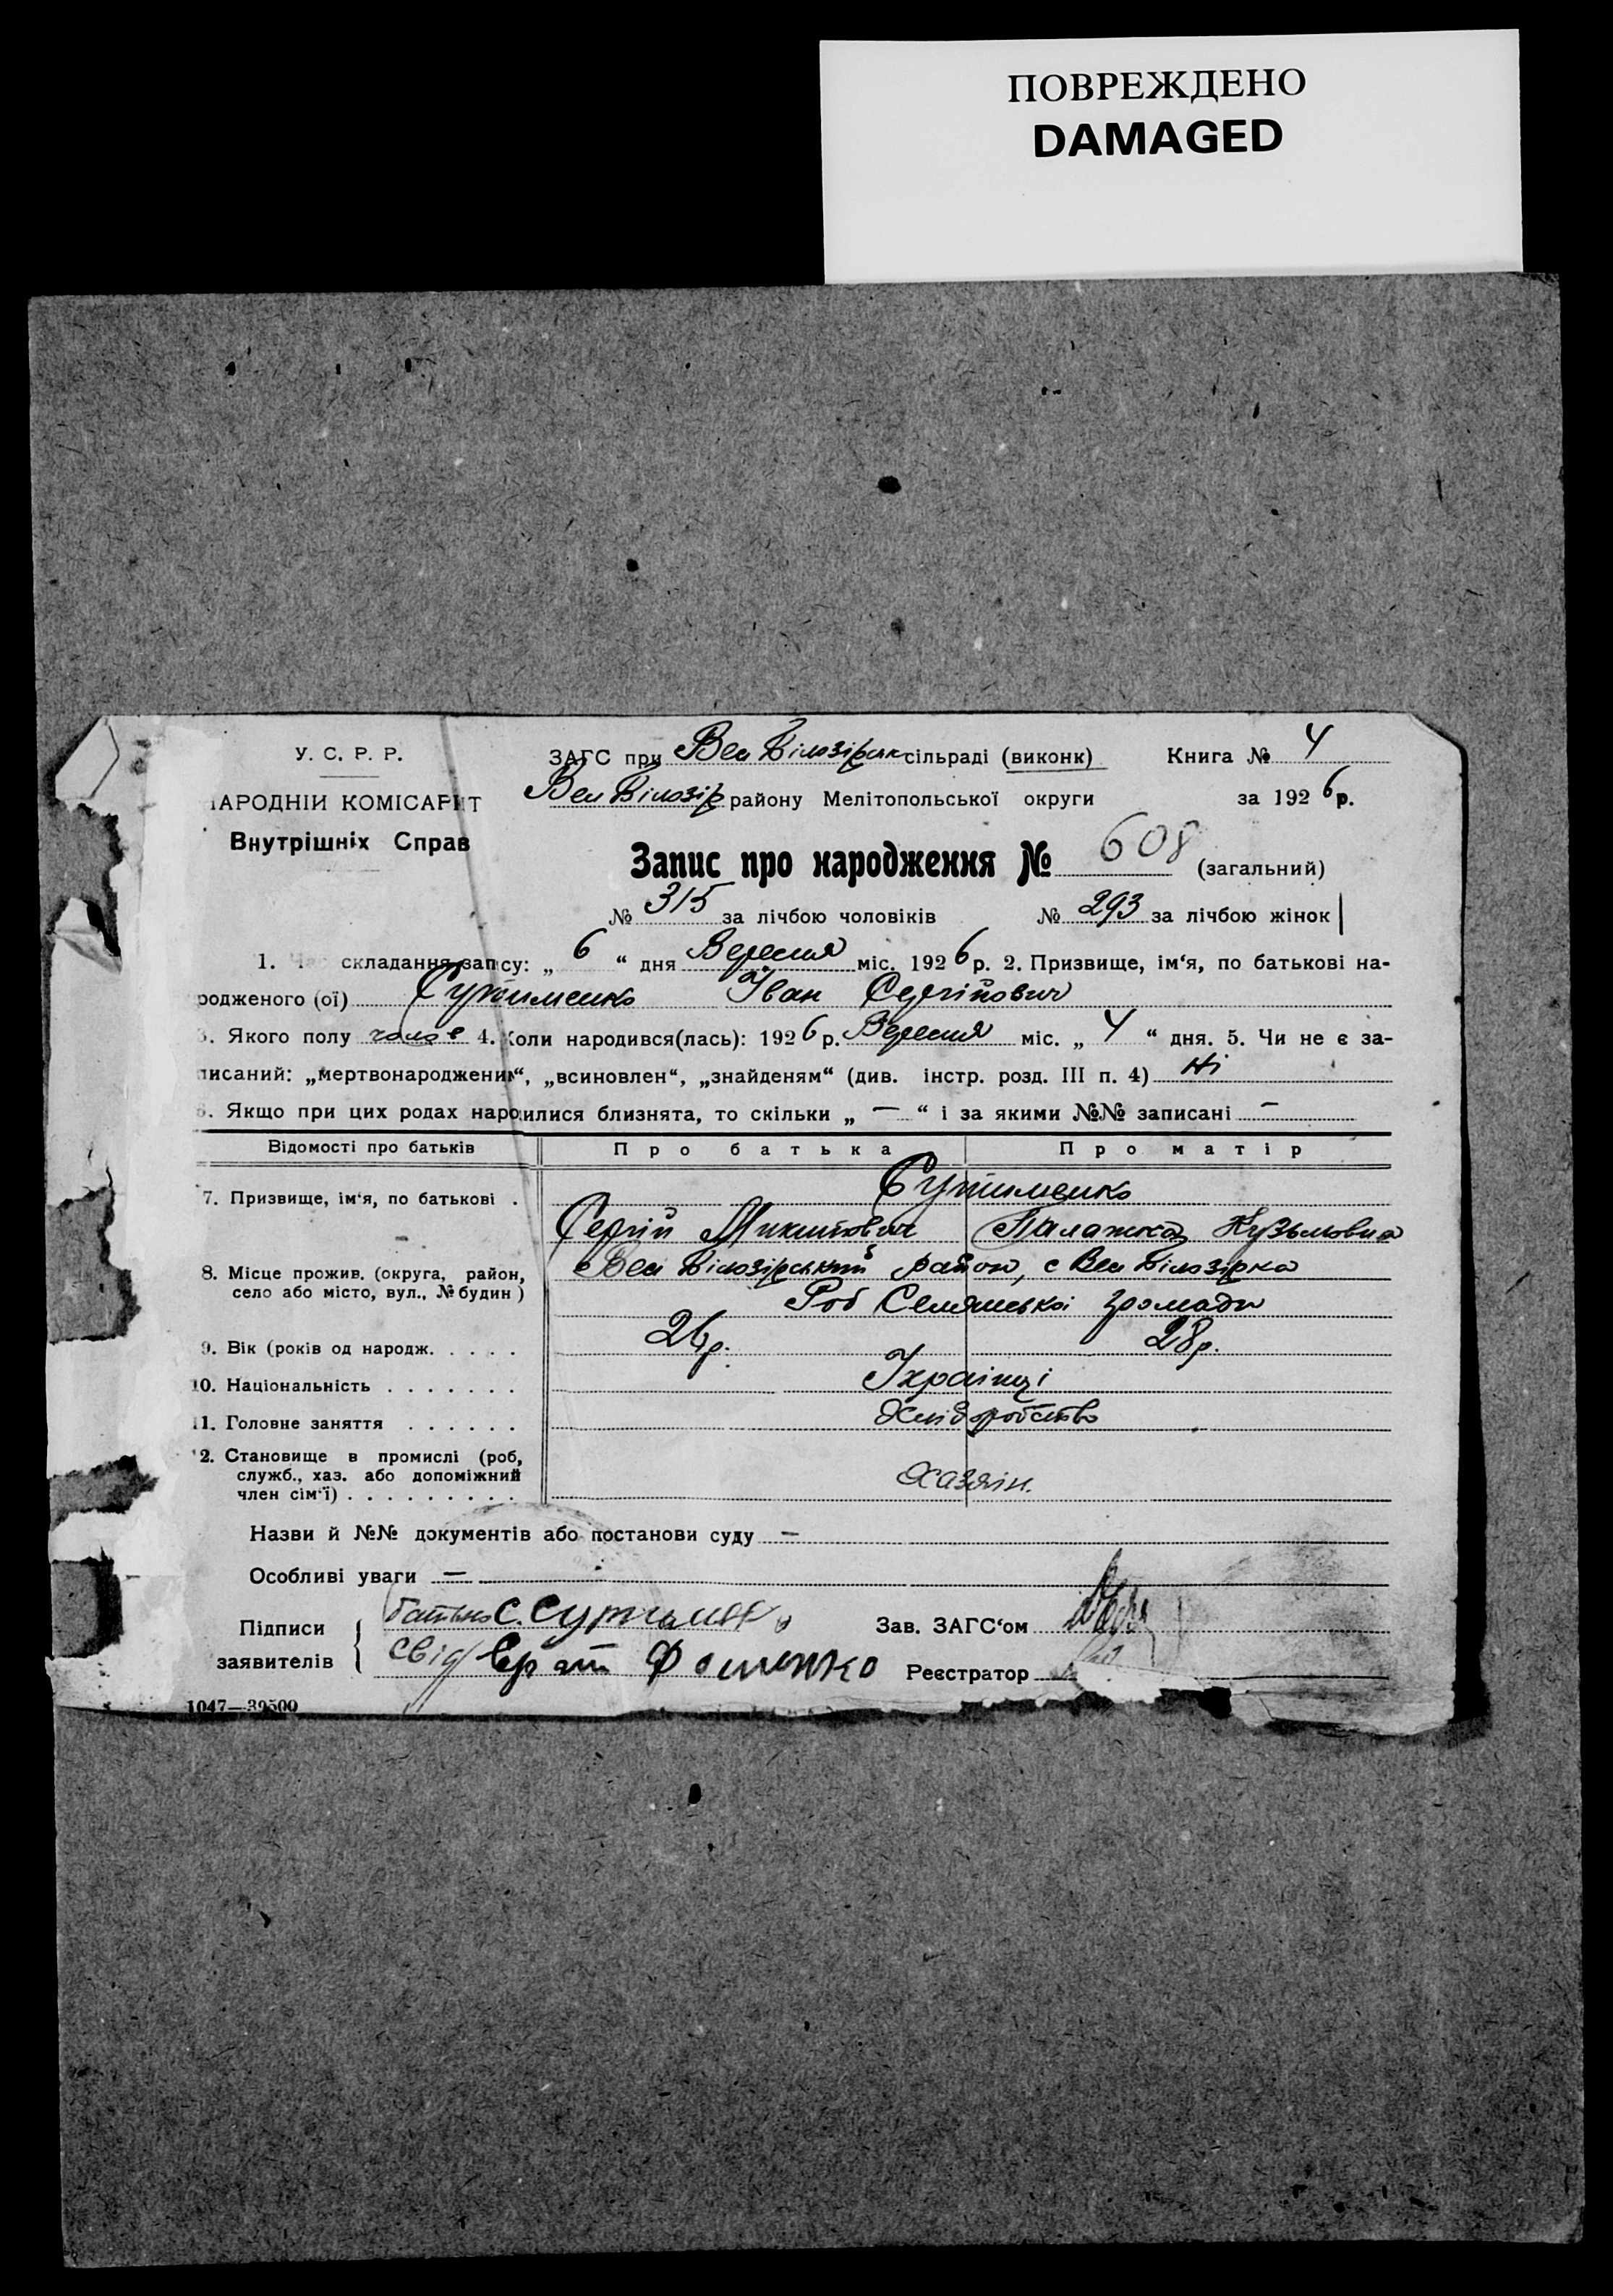 ПОВРЕЖДЕНО
DAMAGED
У. С. Р. Р.
ЗАГС при Вел Білозірськ сільраді (виконк)
Книга № 4
НАРОДНІЙ КОМІСАРІЯТ
Вел Білозір району Мелітопольської округи
за 1926 р.
Внутрішніх Справ
Запис про народження № 608 (загальний)
№ 315 за лічбою чоловіків № 293 за лічбою жінок
1. Час складання запису: „ 6 “ дня Вересня міс. 1926 р. 2. Призвище, ім‘я, по батькові на-
родженого (ої) Іван Сергійович
3. Якого полу чолов 4. Коли народився(лась): 1926 р. Вересня міс. „ 4 “ дня. 5. Чи не є за-
писаний: „мертвонароджений“, „всиновлен“, „знайденям“ (див. інстр. розд. III п. 4) Ні
6. Якщо при цих родах народилися близнята, то скільки „ — “ і за якими №№ записані —
Відомості про батьків
Про батька
Про матір
7. Призвище, ім‘я, по батькові .
Сергій Микитович
Палажка Кузьмовна
8. Місце прожив. (округа, район,
село або місто, вул., № будин)
Вел Білозірський район, с Вел Білозірка
громади
9. Вік (років од народж. . . . .
26 р.
28 р.
10. Національність . . . . . . .
Українці
11. Головне заняття . . . . . .
Хліборобство
12. Становище в промислі (роб,
служб., хаз. або допоміжний
член сім‘ї) . . . . . . . . .
Хазяїн.
Назви й №№ документів або постанови суду —
Особливі уваги —
Підписи
заявителів
батько С.
Зав. ЗАГС‘ом
свід
Реєстратор
1047—39500